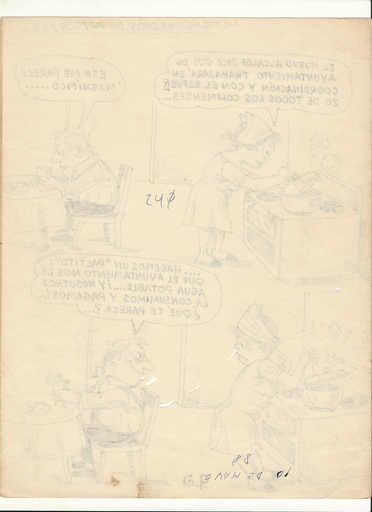 "COORDINACION DE ESFUERZOS"
EL NUEVO ALCALDE DICE QUE EL
AYUNTAMIENTO TRABAJARÁ EN
COORDINACIÓN Y CON EL ESFUER
ZO DE TODOS LOS COLIMENSES...
ESO ME PARECE
MAGNÍFICO.....
24¢
....HAREMOS UN "PACTITO":
QUE EL AYUNTAMIENTO NOS DÉ
AGUA POTABLE....¡Y NOSOTROS
LA CONSUMIMOS Y PAGAMOS!..
¿QUE TE PARECE?..
10 DE MAYO
88